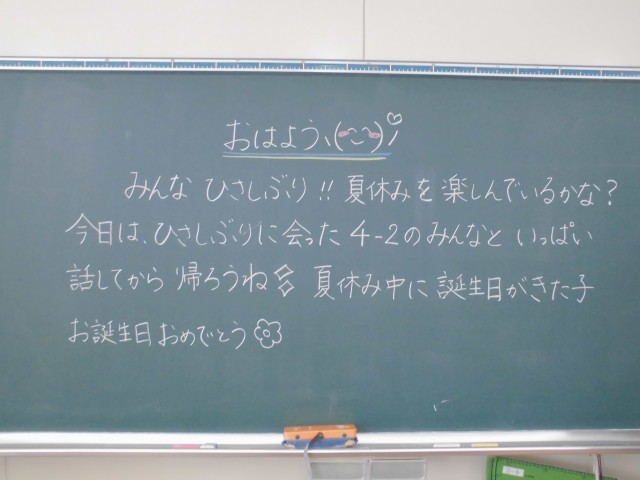 おはよう、(^-^)ノ♡
みんな ひさしぶり!! 夏休みを楽しんでいるかな?
今日は、ひさしぶりに会った 4-2のみんなと いっぱい
話してから 帰ろうね 夏休み中に 誕生日がきた子
お誕生日おめでとう